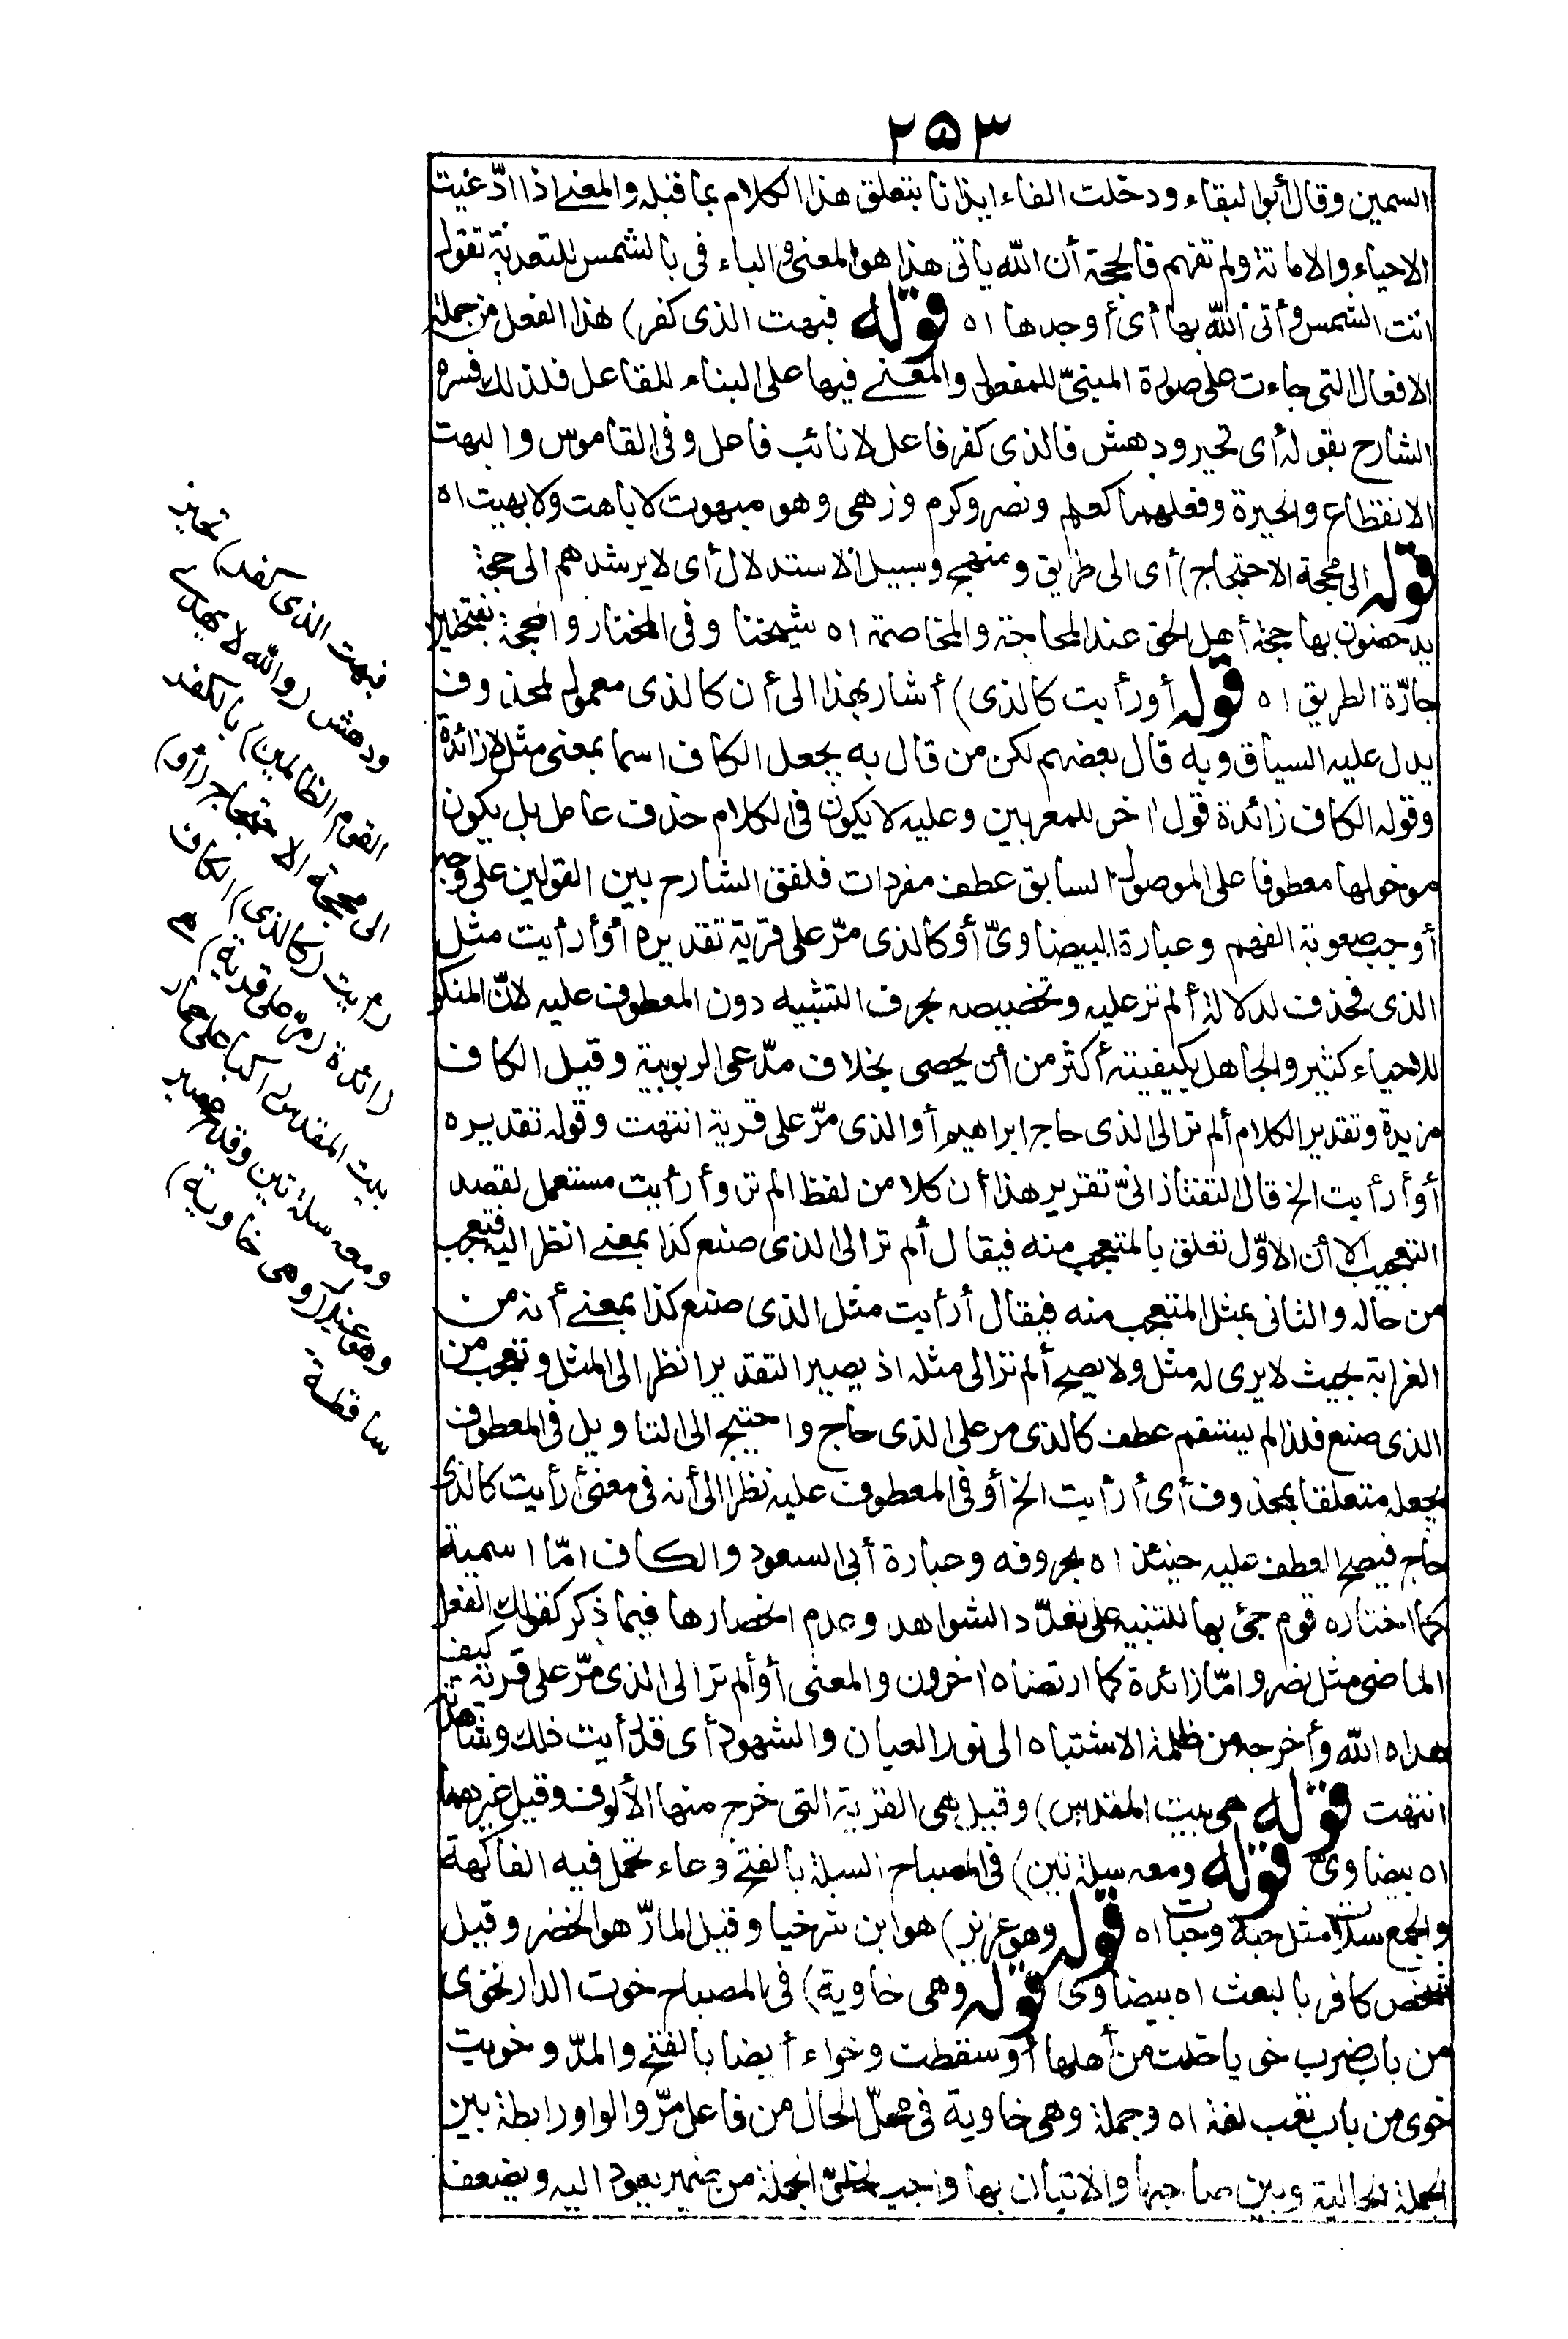 ٢٥٣
السمين وقال أبو البقاء ودخلت الفاء ايذانا بتعلق هذا الكلام بما قبله والمعنى اذا ادّعيت
الاحياء والاماتة ولم تفهم فالحجة أن الله يأتى هذا هو المعنى والباء فى بالشمس للتعدية تقول
اتت الشمس وأتى الله بها أى أوجدها اه قوله فبهت الذى كفر) هذا الفعل من جملة
الافعال التى جاءت على صورة المبنىّ للمفعول والمعنى فيها على البناء للفاعل فلذلك فسره
الشارح بقوله أى تحير ودهش فالذى كفر فاعل لا نائب فاعل وفى القاموس والبهت
الانقطاع والحيرة وفعلهما كعلم ونصر وكرم وزهى وهو مبهوت لا باهت ولا بهيت اه
قوله الى محجة الاحتجاج) أى الى طريق ومنهج وسبيل الاستدلال أى لا يرشدهم الى حجة
يدحضون بها حجة أهل الحق عند المحاجة والمخاصمة اه شيخنا وفى المختار والمحجة بفتحتين
جادّة الطريق اه قوله أو رأيت كالذى) أشار بهذا الى أن كالذى معمول لمحذوف
يدل عليه السياق وبه قال بعضهم لكن من قال به يجعل الكاف اسما بمعنى مثل لا زائدة
وقوله الكاف زائدة قول اخر للمعربين وعليه لا يكون فى الكلام حذف عامل بل يكون
مدخولها معطوفا على الموصول السابق عطف مفردات فلفق الشارح بين القولين على وجه
أوجب صعوبة الفهم وعبارة البيضاوىّ أو كالذى مرّ على قرية تقديره أو أرأيت مثل
الذى فحذف لدلالة ألم تر عليه وتخصيصه بحرف التشبيه دون المعطوف عليه لانّ المنكر
للاحياء كثير والجاهل بكيفيته أكثر من أن يحصى بخلاف مدّعى الربوبية وقيل الكاف
مزيدة وتقدير الكلام ألم تر الى الذى حاج ابراهيم أو الذى مرّ على قرية انتهت وقوله تقديره
أو أرأيت الخ قال التفتازانىّ تقرير هذا أن كلا من لفظ الم تر وأرأيت مستعمل لقصد
التعجيب الا أن الاوّل تعلق بالمتعجب منه فيقال ألم تر الى الذى صنع كذا بمعنى انظر اليه فتعجب
من حاله والثانى بمثل المتعجب منه فيقال أرأيت مثل الذى صنع كذا بمعنى أنه من
الغرابة بحيث لا يرى له مثل ولا يصح ألم تر الى مثله اذ يصير التقدير انظر الى المثل وتعجب من
الذى صنع فلذا لم يستقم عطف كالذى مر على الذى حاج واحتيج الى التأويل فى المعطوف
بجعله متعلقا بمحذوف أى أرأيت الخ أو فى المعطوف عليه نظرا الى أنه فى معنى أرأيت كالذى
حاج فيصح العطف عليه حينئذ اه بحروفه وعبارة أبى السعود والكاف امّا اسمية
كما اختاره قوم جئ بها للتنبيه على تعدّد الشواهد وعدم انحصارها فيما ذكر كقولك الفعل
الماضى مثل نصر وامّا زائدة كما ارتضاه اخرون والمعنى أو ألم تر الى الذى مرّ على قرية كيف
هداه الله وأخرجه من ظلمة الاشتباه الى نور العيان والشهود أى قد رأيت ذلك وشاهدته
انتهت قوله هى بيت المقدس) وقيل هى القرية التى خرج منها الألوف وقيل غيرهما
اه بيضاوىّ قوله ومعه سلة تين) فى المصباح السلة بالفتح وعاء تحمل فيه الفاكهة
والجمع سلات مثل حبة وحبات اه قوله وهو عزير) هو ابن شرخيا وقيل المارّ هو الخضر وقيل
شخص كافر بالبعث اه بيضاوى قوله وهى خاوية) فى المصباح خوت الدار تخوى
من باب ضرب خويا خلت من أهلها أو سقطت وخواء أيضا بالفتح والمدّ وخويت
خوى من باب تعب لغة اه وجملة وهى خاوية فى محلّ الحال من فاعل مرّ والواو رابطة بين
الجملة الحالية وبين صاحبها والاتيان بها واجب لخلوّ الجملة من ضمير يعود اليه ويضعف
فبهت الذى كفر) تحير
ودهش (والله لا يهدى
القوم الظالمين) بالكفر
الى محجة الاحتجاج (أو)
رأيت (كالذى) الكاف
زائدة (مرّ على قرية) هى
بيت المقدس راكبا على حمار
ومعه سلة تين وقدح عصير
وهو عزير (وهى خاوية)
ساقطة